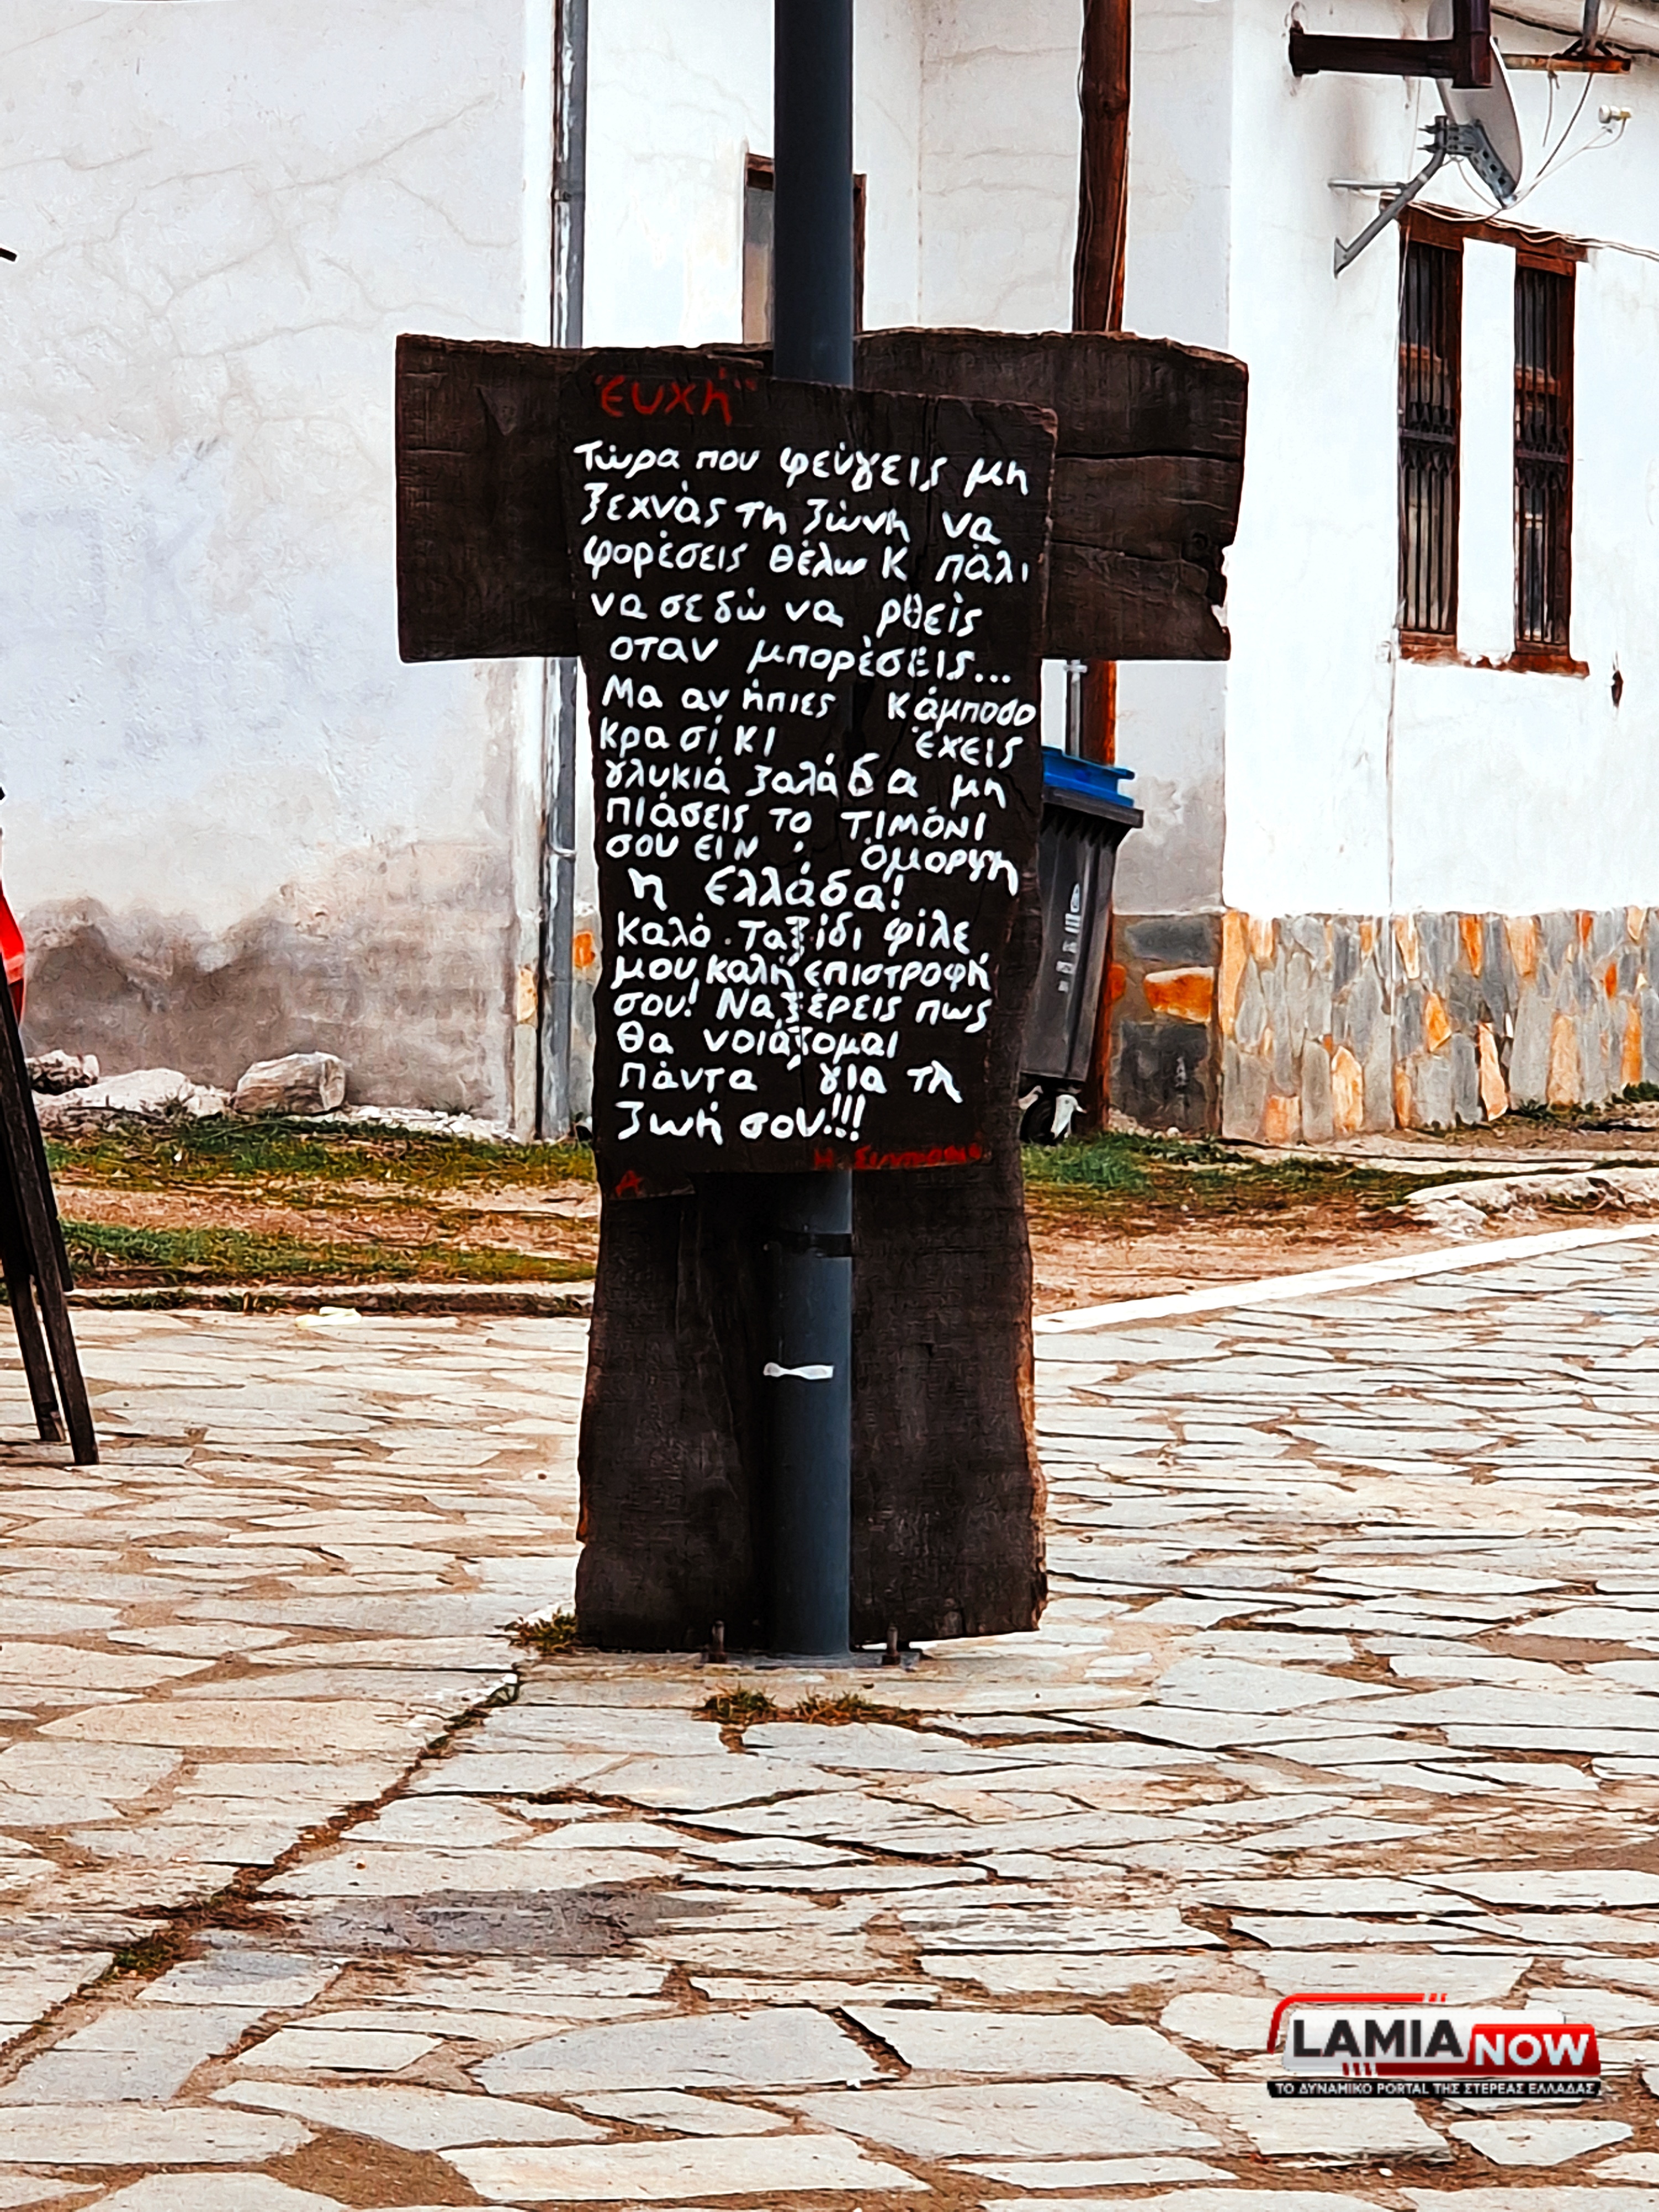 "ευχή"
Τώρα που φεύγεις μη
ξεχνάς τη ζώνη να
φορέσεις θέλω κ πάλι
να σε δώ να ρθείς
οταν μπορέσεις...
Μα αν ήπιες κάμποσο
κρασί κι έχεις
γλυκιά ζαλάδα μη
πιάσεις το τιμόνι
σου ειν όμορφη
η Ελλάδα!
Καλό ταξίδι φίλε
μου καλή επιστροφή
σου! Να ξέρεις πως
θα νοιάζομαι
πάντα για τη
ζωή σου!!!
Α Η.
LAMIA NOW
ΤΟ ΔΥΝΑΜΙΚΟ PORTAL ΤΗΣ ΣΤΕΡΕΑΣ ΕΛΛΑΔΑΣ